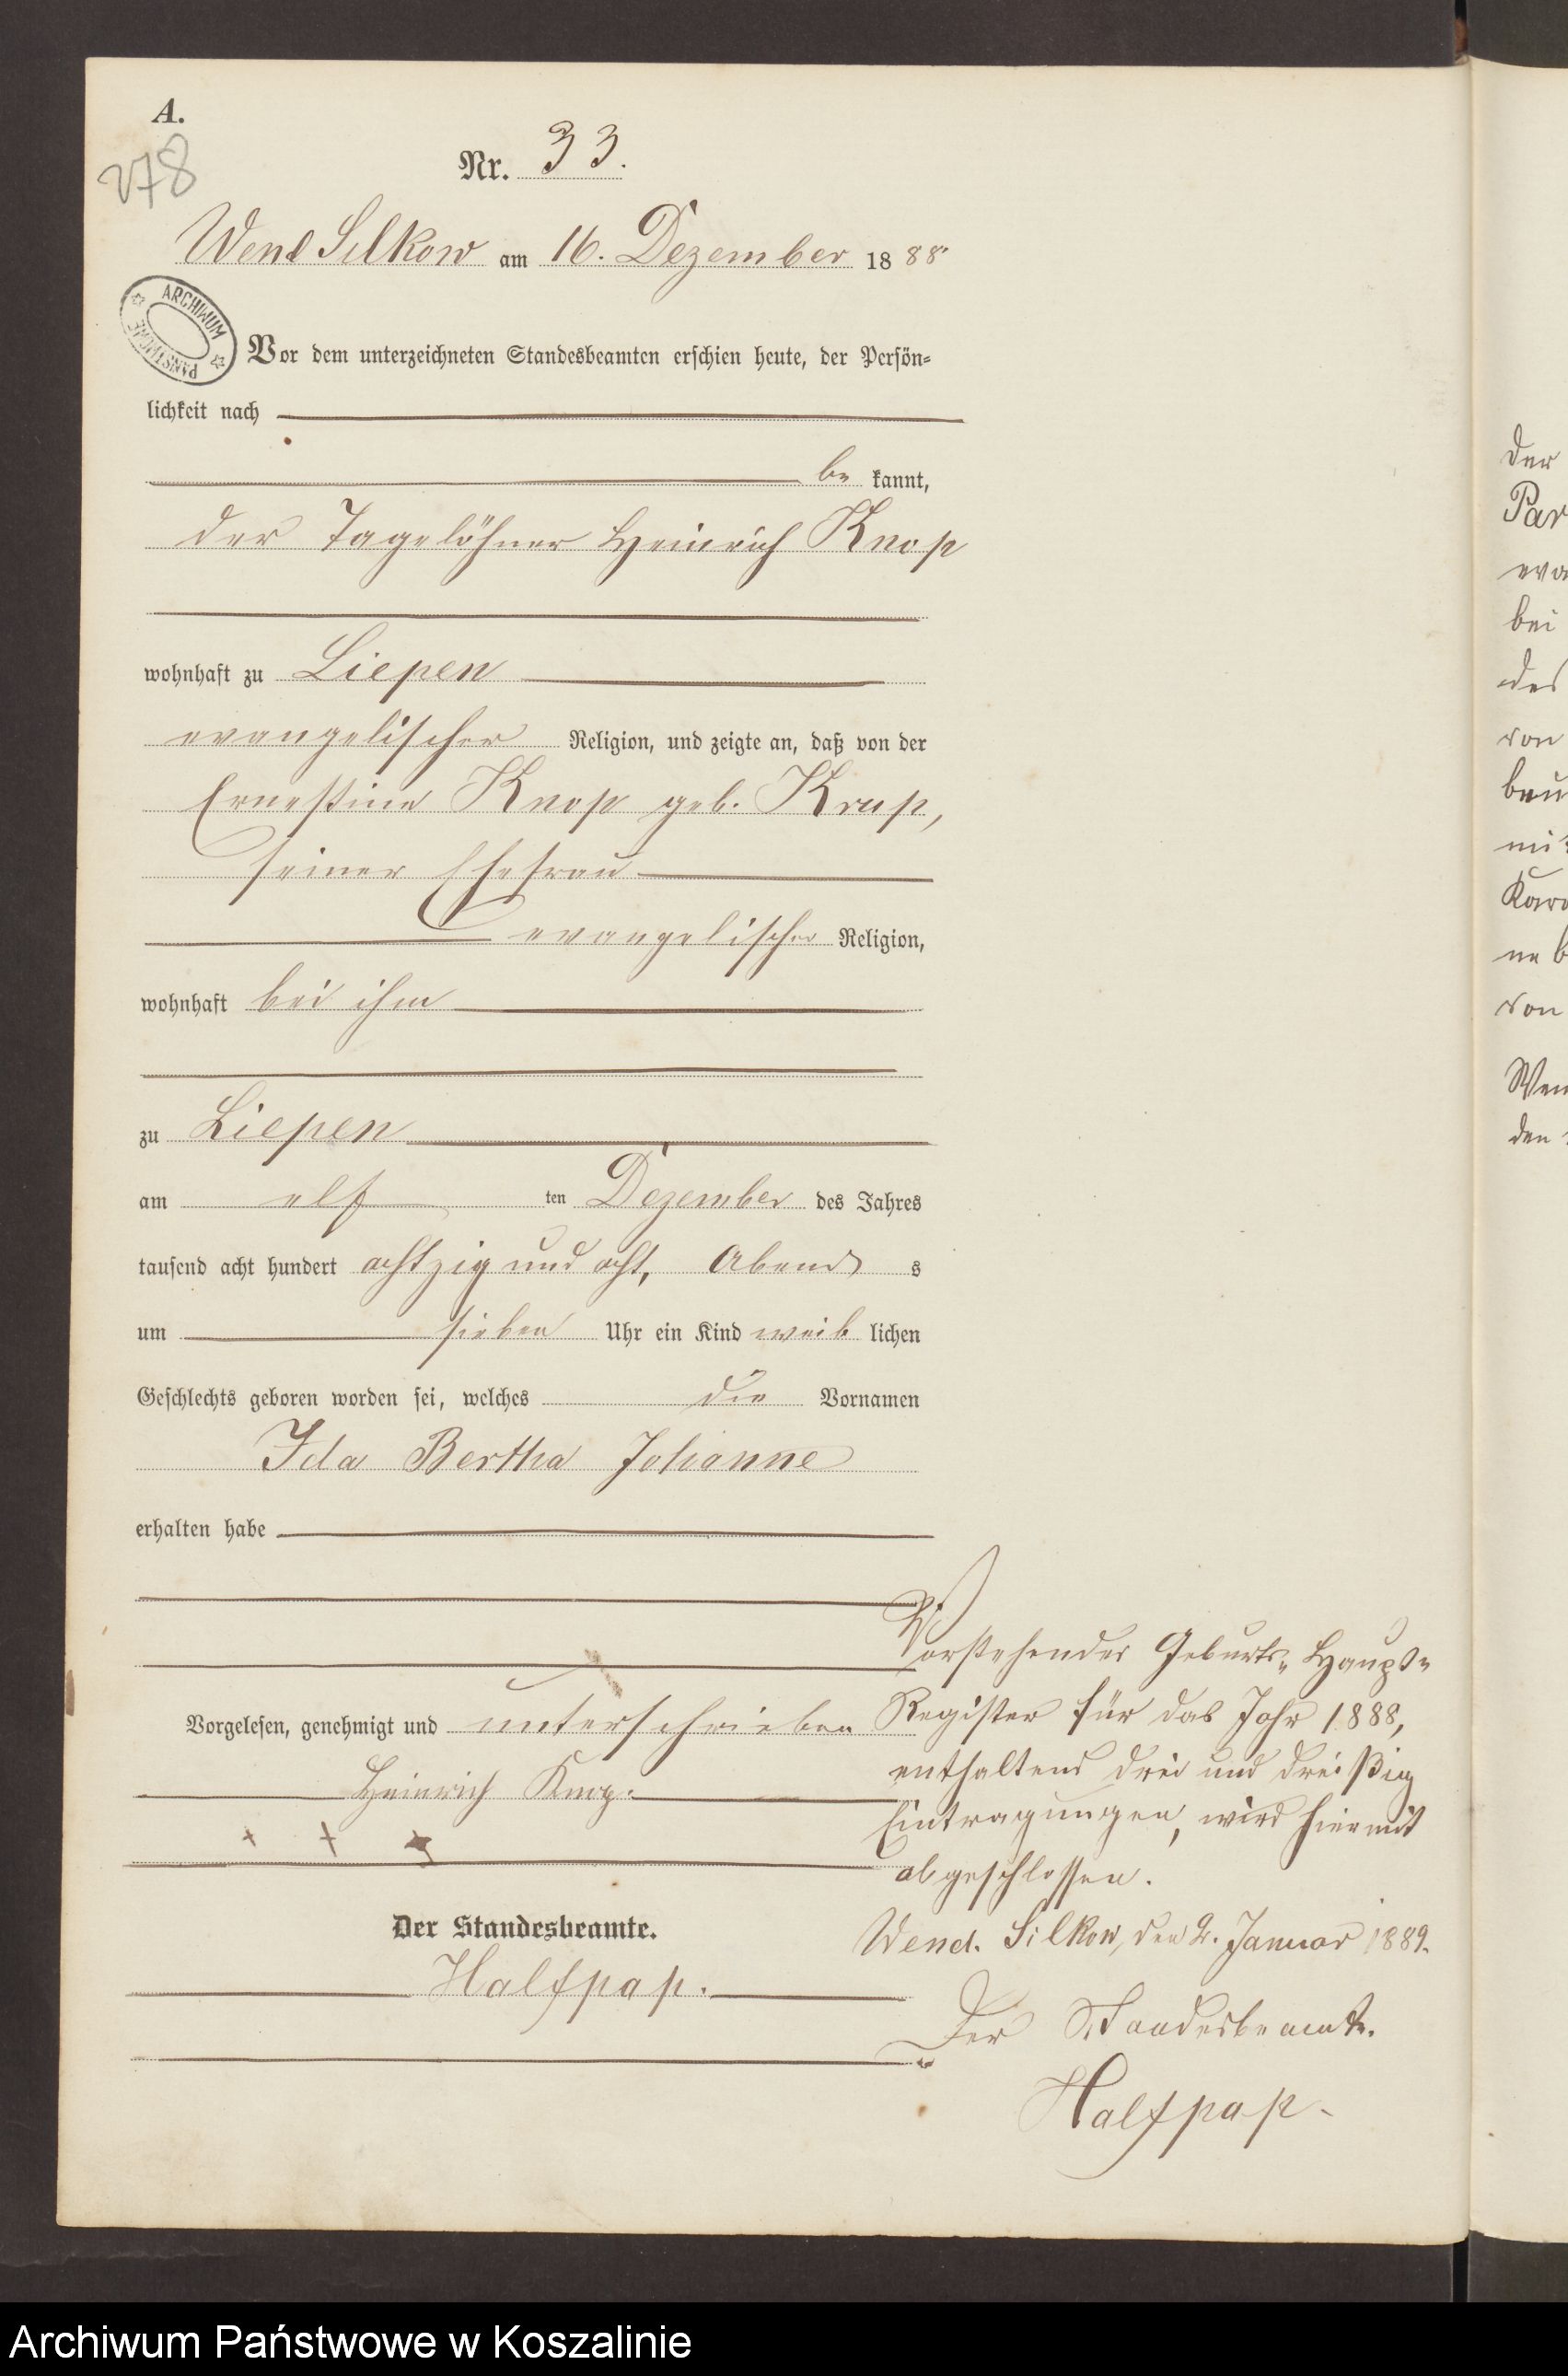 A.
278
Nr. 33.
Wend Silkow am 16. Dezember 1888
ARCHIWUM PAŃSTWOWE
Vor dem unterzeichneten Standesbeamten erschien heute, der Persön=
lichkeit nach
be kannt,
der Tagelöhner Heinrich Knop
wohnhaft zu Liepen
evangelischer Religion, und zeigte an, daß von der
Ernestine Knop geb. Krup,
seiner Ehefrau
evangelischer Religion,
wohnhaft bei ihm
zu Liepen
am elf ten Dezember des Jahres
tausend acht hundert achtzig und acht, Abend s
um sieben Uhr ein Kind weib lichen
Geschlechts geboren worden sei, welches die Vornamen
Ida Bertha Johanne
erhalten habe
Vorgelesen, genehmigt und unterschrieben
Heinrich Knop.
Der Standesbeamte.
Halfpap.
Vorstehendes Geburts-Haupt-
Register für das Jahr 1888,
enthaltend drei und dreißig
Eintragungen, wird hiermit
abgeschlossen.
Wend. Silkow, den 2. Januar 1889.
Der Standesbeamte.
Halfpap.
der
Par
eva
bei
des
von
von
den
Archiwum Państwowe w Koszalinie